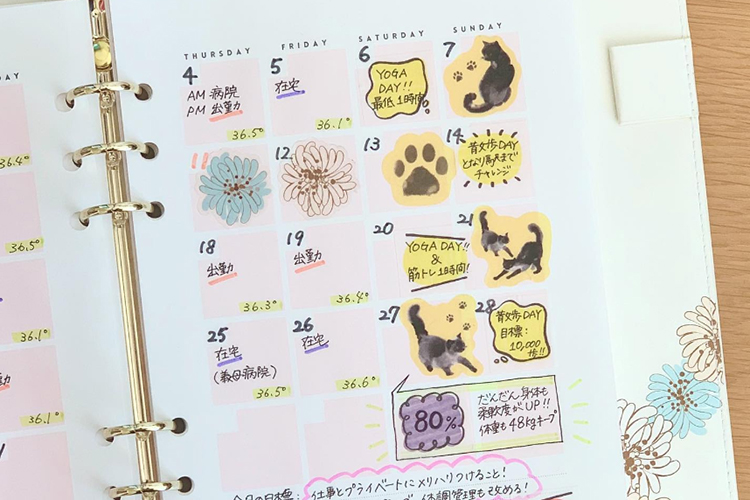 DAY
THURSDAY
FRIDAY
SATURDAY
SUNDAY
4
AM 病院
PM 出勤
36.5°
5
在宅
36.1°
6
YOGA
DAY!!
最低1時間
7
36.4°
11
12
13
14
散歩DAY
となり駅まで
チャレンジ
36.5°
18
出勤
36.3°
19
出勤
36.4°
20
YOGA DAY!!
&
筋トレ1時間!
21
36.1°
25
在宅
(義母病院)
36.5°
26
在宅
36.6°
27
28
散歩DAY
目標:
10,000
歩!!
36.1°
80%
だんだん身体も
柔軟度がUP!!
体重も48kgキープ
今月の目標:
仕事とプライベートにメリハリつけること!
体調管理も改める!